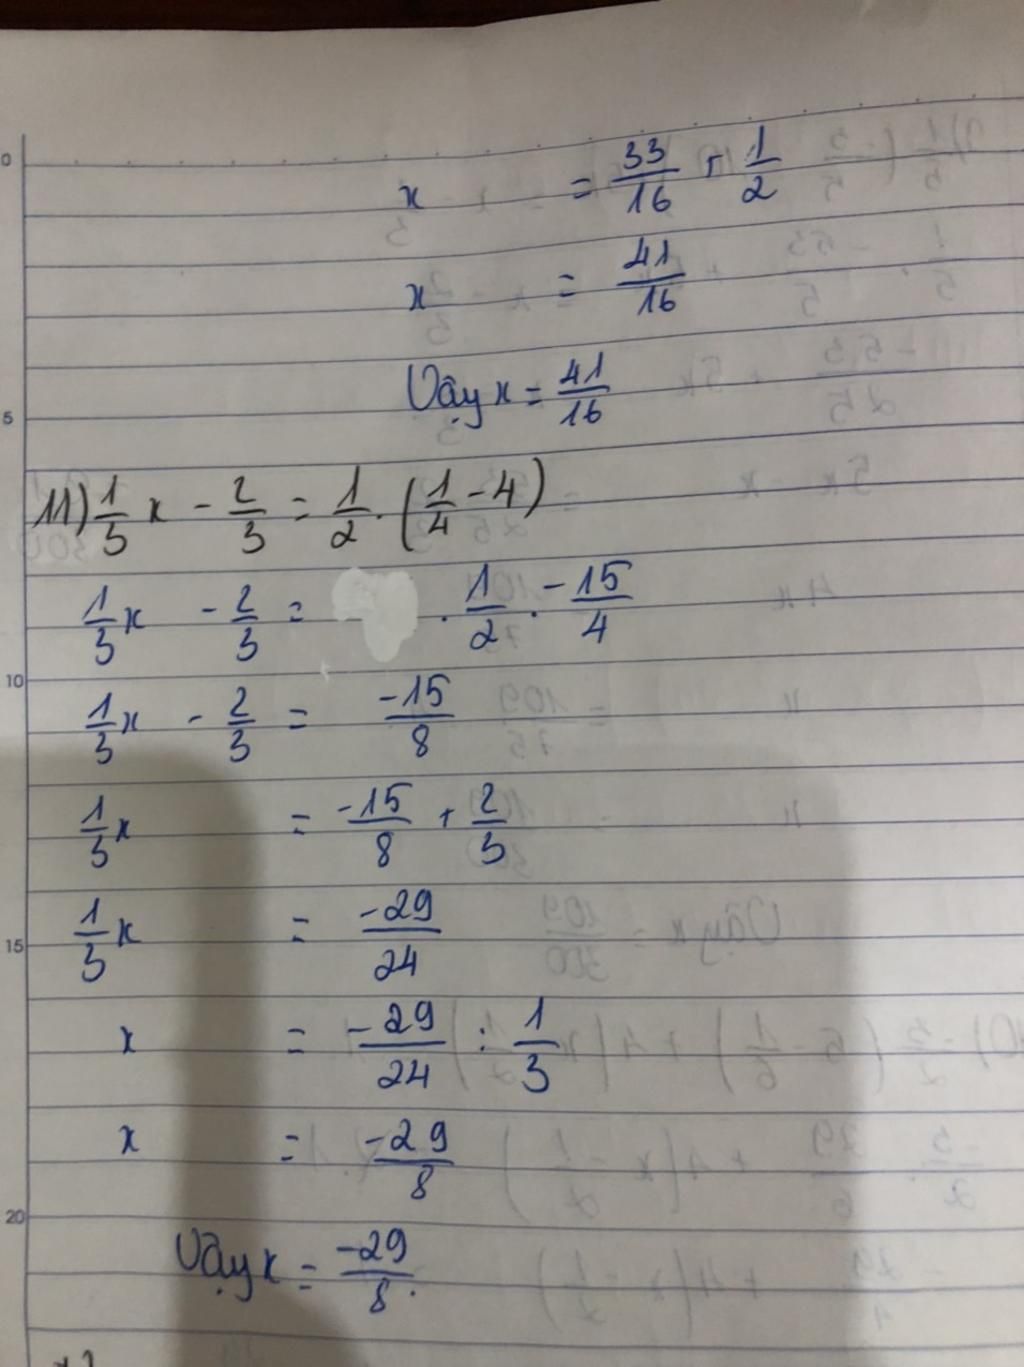 x = 33/16 + 1/2
x = 41/16
Vậy x = 41/16
11) 1/3 x - 2/3 = 1/2 . (1/4 - 4)
1/3 x - 2/3 = . 1/2 . -15/4
1/3 x - 2/3 = -15/8
1/3 x = -15/8 + 2/3
1/3 x = -29/24
x = -29/24 : 1/3
x = -29/8
Vậy x = -29/8.